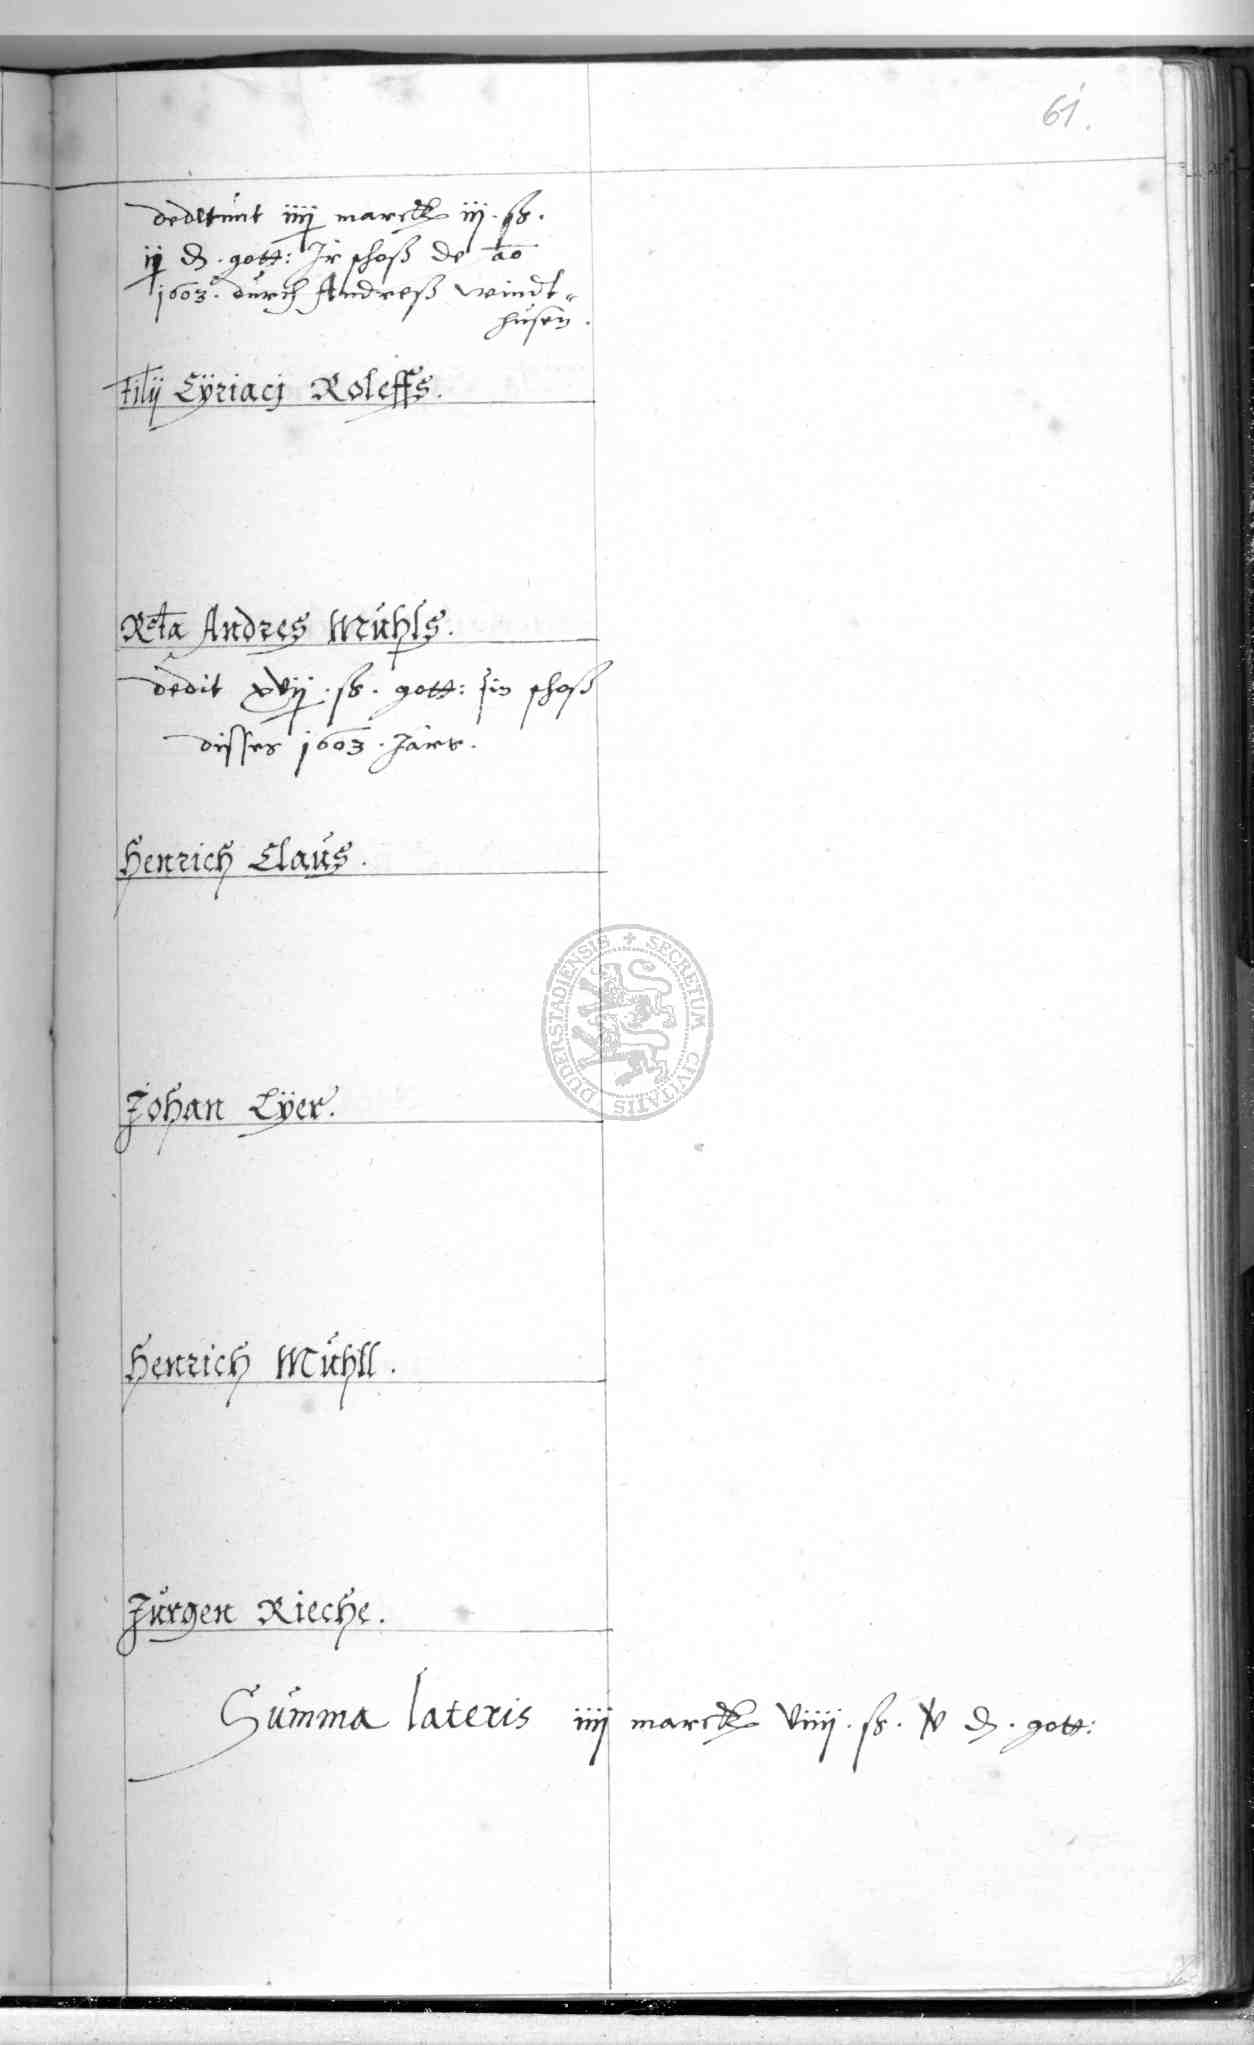 61.
dederunt iiij marck iij. ß.
ij ₰. gott: Ir schoß de ao
1603. durch Andreß Windt=
husen.
Filij Cÿriacj Roleffs.
Rcta Andres Mühls.
dedit xvij. ß. gott: sin schoß
disses 1603. Jars.
Henrich Claus.
Johan Eÿer.
Henrich Mühll.
Jurgen Rieche.
Summa lateris iiij marck viiij. ß. ₰. gott:
SECRETUM CIVITATIS DUDERSTADIENSIS